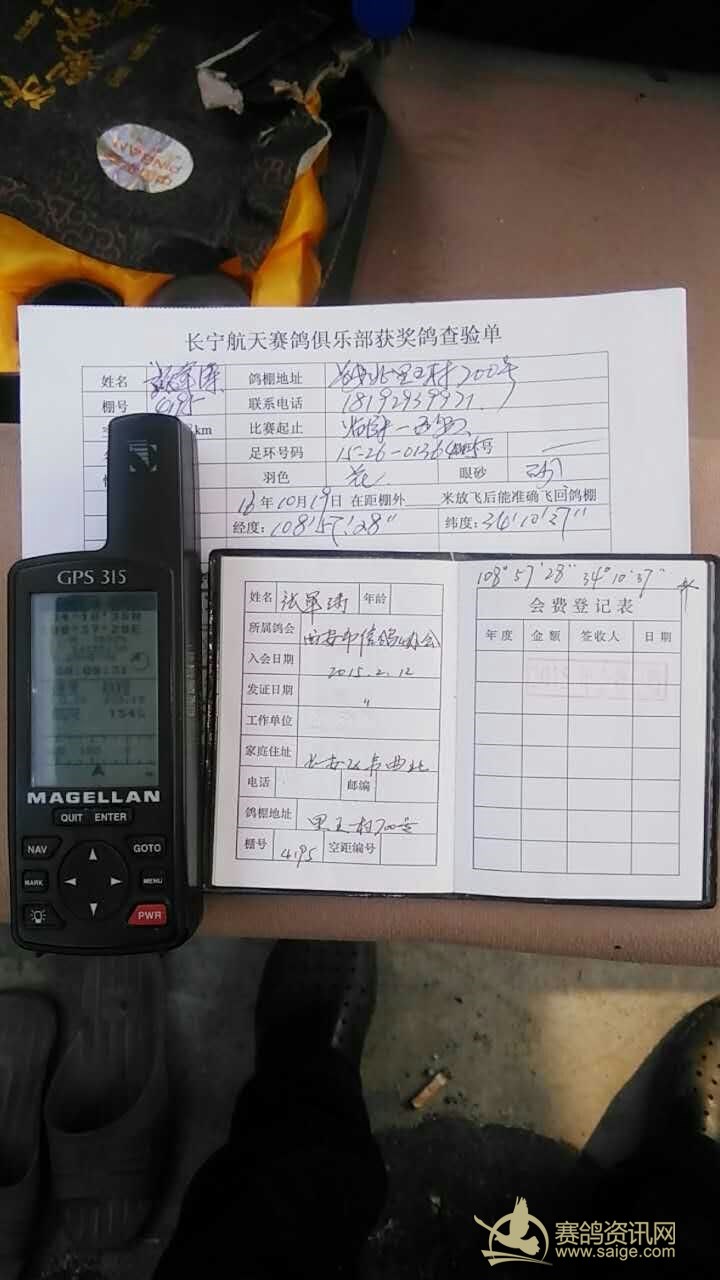 长宁航天赛鸽俱乐部获奖鸽查验单
姓名 张军涛 鸽棚地址
棚号 4195 联系电话 18192939971
km 比赛起止
足环号码 15-26-01364
羽色 花 眼砂 砂
16年10月19日 在距棚外 米放飞后能准确飞回鸽棚
经度：108°57′28″ 纬度：34°10′37″
GPS 315
MAGELLAN
QUIT ENTER
NAV GOTO
MARK MENU
PWR
姓名 张军涛 年龄
所属鸽会 西安市信鸽协会
入会日期 2015.2.12
发证日期 〃
工作单位
家庭住址 长安区韦曲北
电话 邮编
鸽棚地址 里王村700号
棚号 4195 空距编号
108°57′28″ 34°10′37″
会费登记表
年度 金额 签收人 日期
赛鸽资讯网
www.saige.com